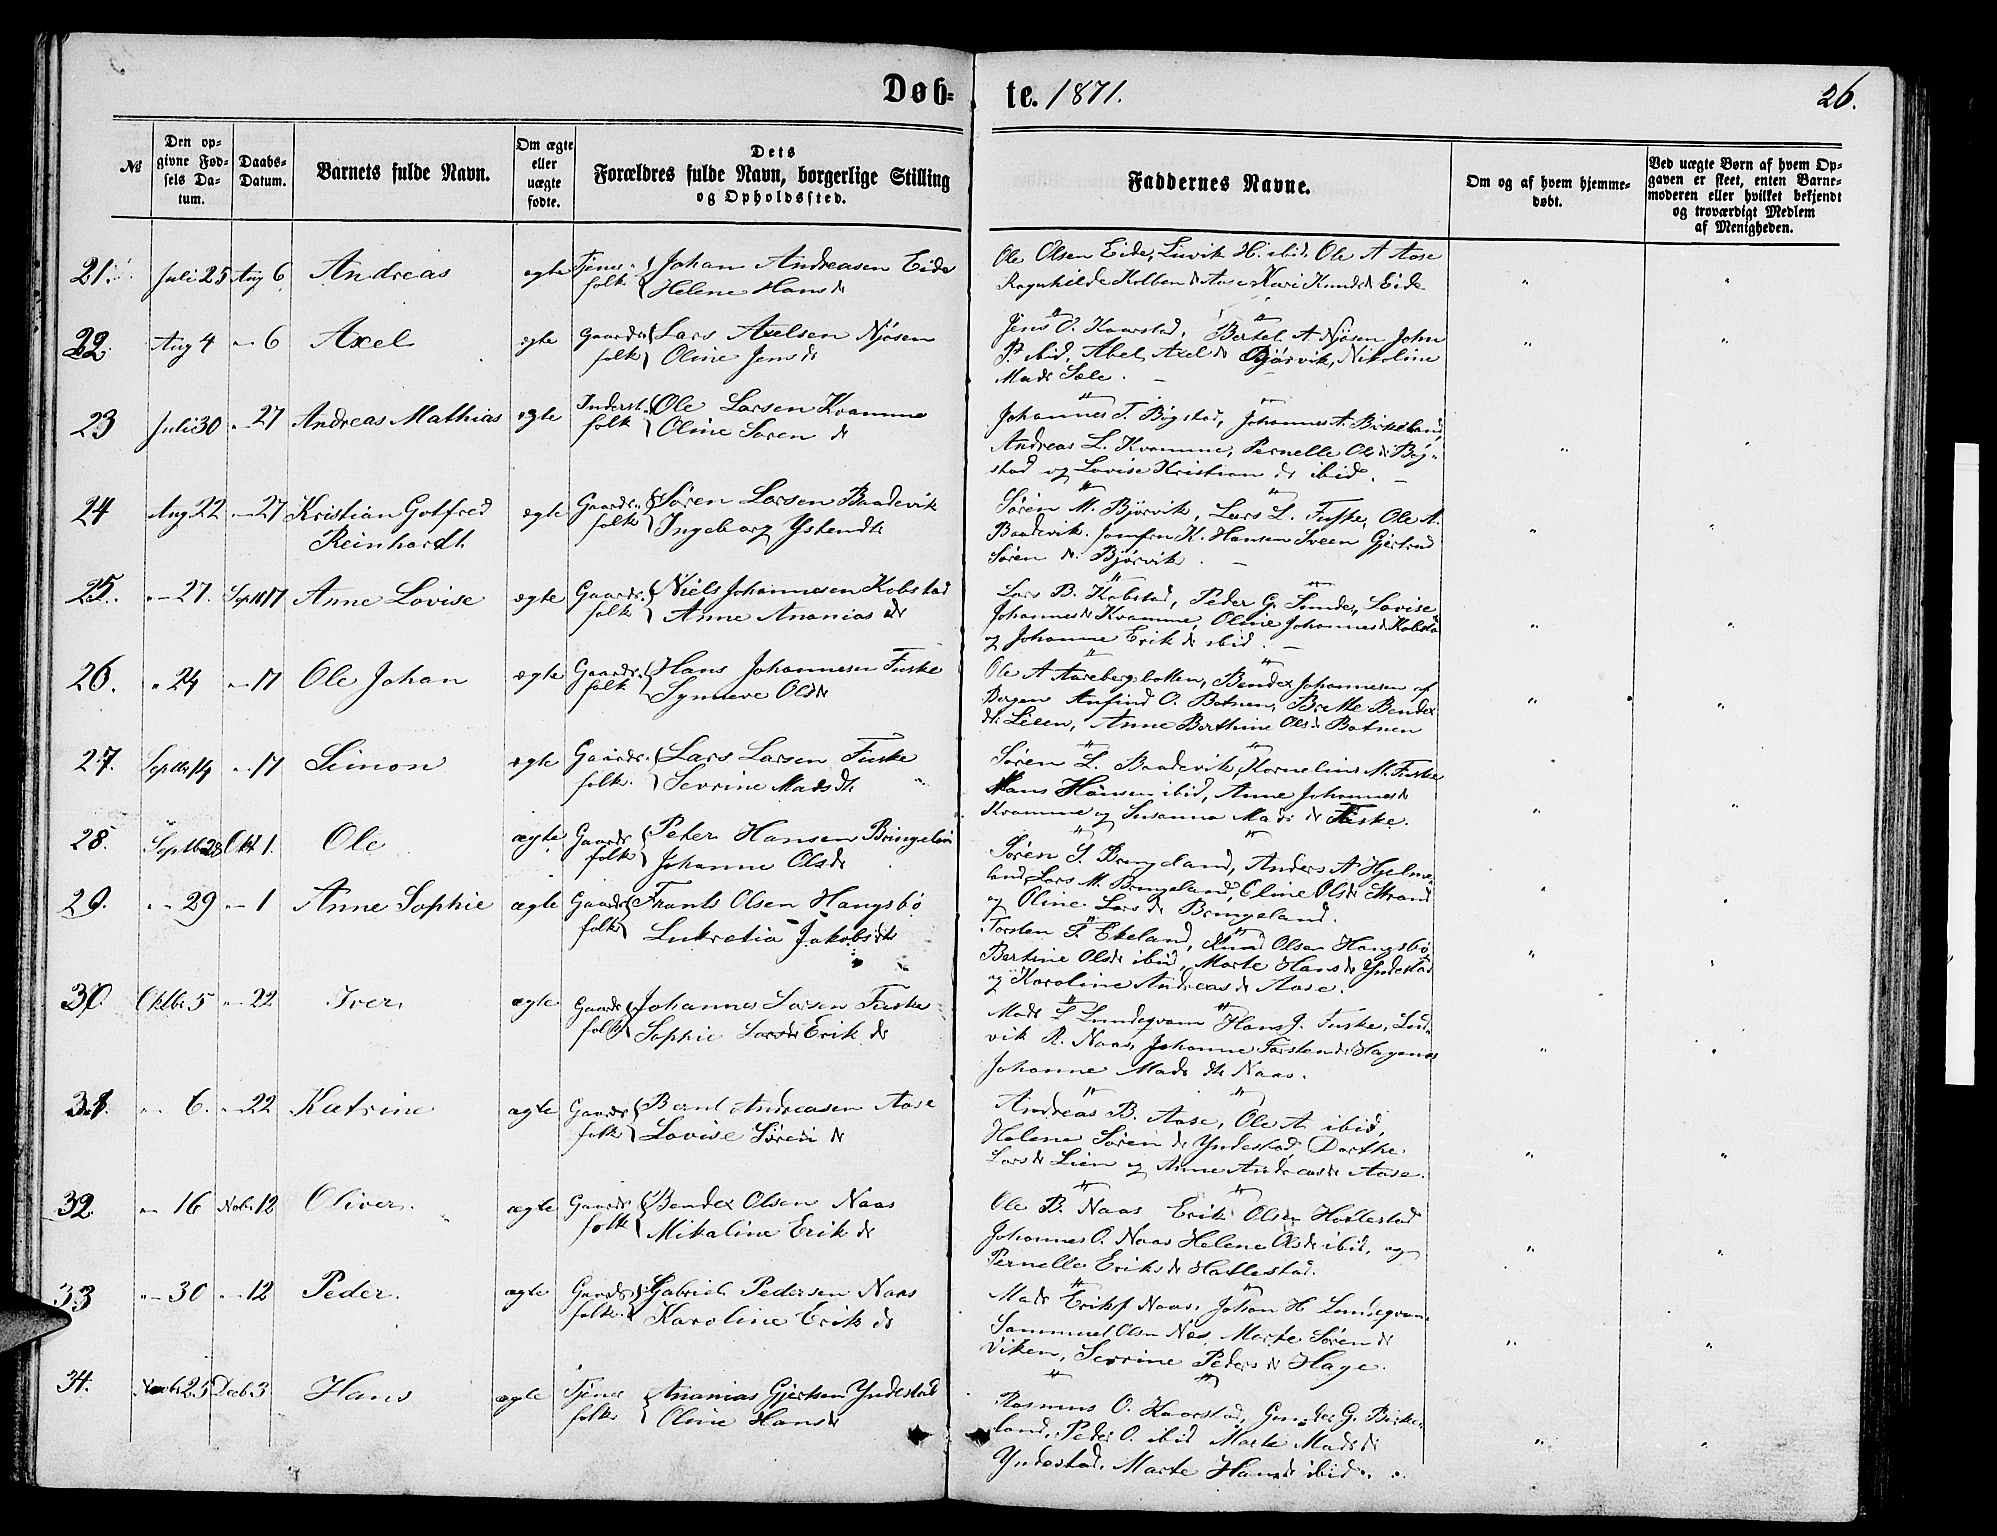 Døb-
te. 1871.
26.
№
Den op-
givne Fød-
sels Da-
tum.
Daabs-
Datum.
Barnets fulde Navn.
Om ægte
eller
uægte
fødte.
Dets
Forældres fulde Navn, borgerlige Stilling
og Opholdssted.
Faddernes Navne.
Om og af hvem hjemme-
døbt.
Ved uægte Børn af hvem Op-
gaven er skeet, enten Barne-
moderen eller hvilket bekjendt
og troværdigt Medlem
af Menigheden.
21. Juli 25 Aug 6 Andreas ægte Tjener- folk Johan Andreasen Eide
Helene Hans dr
Ole Olsen Eide, Luvik H. ibid, Ole A Aase
Ragnhilde Kolben dr Aase Kari Knuds dr Eide
22. Aug 4 " 6 Axel ægte Gaards- folk Lars Axelsen Njøsen
Oline Jens dr
Jens O. Kaarstad, Bertel A Njøsen John
P ibid, Abel Axel dr Bjørvik, Nikoline
Mads Sæle.
23 Juli 30 " 27 Andreas Mathias ægte Inderst- folk Ole Larsen Kvamme
Oline Søren dr
Johannes T. Bøgstad, Johannes A. Birkeland,
Andreas L. Kvamme, Pernelle Ols dr Bøg-
stad og Lovise Kristian dr ibid.
24 Aug 22 " 27 Kristian Gotfred
Reinhardt ægte Gaards- folk Søren Larsen Baadevik
Ingeborg Ystendr
Søren M. Bjørvik, Lars L. Fuske, Ole A.
Baadevik. Jomfru K. Hansen Sveen Gjertrud
Søren dr Bjørvik.
25. " 27. Septbr 17 Anne Lovise ægte Gaards- folk Niels Johannesen Kobstad
Anne Ananias dr
Lars B. Kobstad, Peder G. Sunde, Lovise
Johannes dr Kvamme, Oline Johannes dr Kobstad
og Johanne Erik dr ibid.
26. " 24 " 17 Ole Johan ægte Gaards- folk Hans Johannesen Fuske
Synneve Ols dr
Ole A Aarebergsbotten, Bendex Johannesen af
Bergen Anfind O. Botnen, Britte Bendex
dr Lieen, Anne Berthine Ols dr Botnen
27. Septbr 14 " 17 Simon ægte Gaards- folk. Lars Larsen Fuske
Sevrine Mads dr
Søren L. Baadevik, Kornelius M. Fuske
Hans Hansen ibid, Anne Johannes dr
Kvamme og Susanna Mads dr Fuske.
28. Septbr 28 Okt 1. Ole ægte Gaards folk Peter Hansen Bringeland
Johanne Ols dr
Søren S. Bringeland, Anders A Hjelme-
land, Lars M. Bringeland, Oline Ols dr Strand
og Oline Lars dr Bringeland.
29. " 29 " 1 Anne Sophie ægte Gaards folk Frants Olsen Haugsbø
Lukretia Jakobs dr
Torsten T. Ekeland, Knud Olsen Haugsbø,
Bertine Ols dr ibid, Marte Hans dr Yndestad
og Karoline Andreas dr Aase.
30 Oktbr 5 " 22 Iver ægte Gaards folk Johannes Larsen Fuske
Sophie Lars dr Erik dr
Mads L Lundegvam Hans J. Fuske, Lud-
vik R. Naas, Johanne Torsten dr Hagenes
Johanne Mads dr Naas.
31. " 6. " 22 Katrine ægte Gaards folk Bernt Andreasen Aase
Lovise Søren dr
Andreas B. Aase, Ole A ibid,
Helene Søren dr Yndestad, Dorthe
Lars dr Lien og Anne Andreas dr Aase.
32. " 16 Novbr 12 Oliver. ægte Gaards folk Bendex Olsen Naas
Mikaline Erik dr
Ole B. Naas Erik Olsen Hatlestad
Johannes O. Naas Helene Ols dr ibid, og
Pernelle Eriks dr Hatlestad.
33 " 30 " 12 Peder. ægte Gaards folk. Gabriel Pedersen Naas
Karoline Erik dr
Mads Eriks Naas, Johan H Lundegvam
Sammuel Olsen Nas, Marte Søren dr
Viken, Sevrine Peders dr Hage.
34. Novbr 25 Decbr 3 Hans ægte Tjener folk Ananias Gjertsen Yndestad
Oline Hans dr
Rasmus O. Kaarstad, Gunder G. Birke-
land, Peder O. ibid Marte Mads dr
Yndestad, Marte Hans dr ibid.